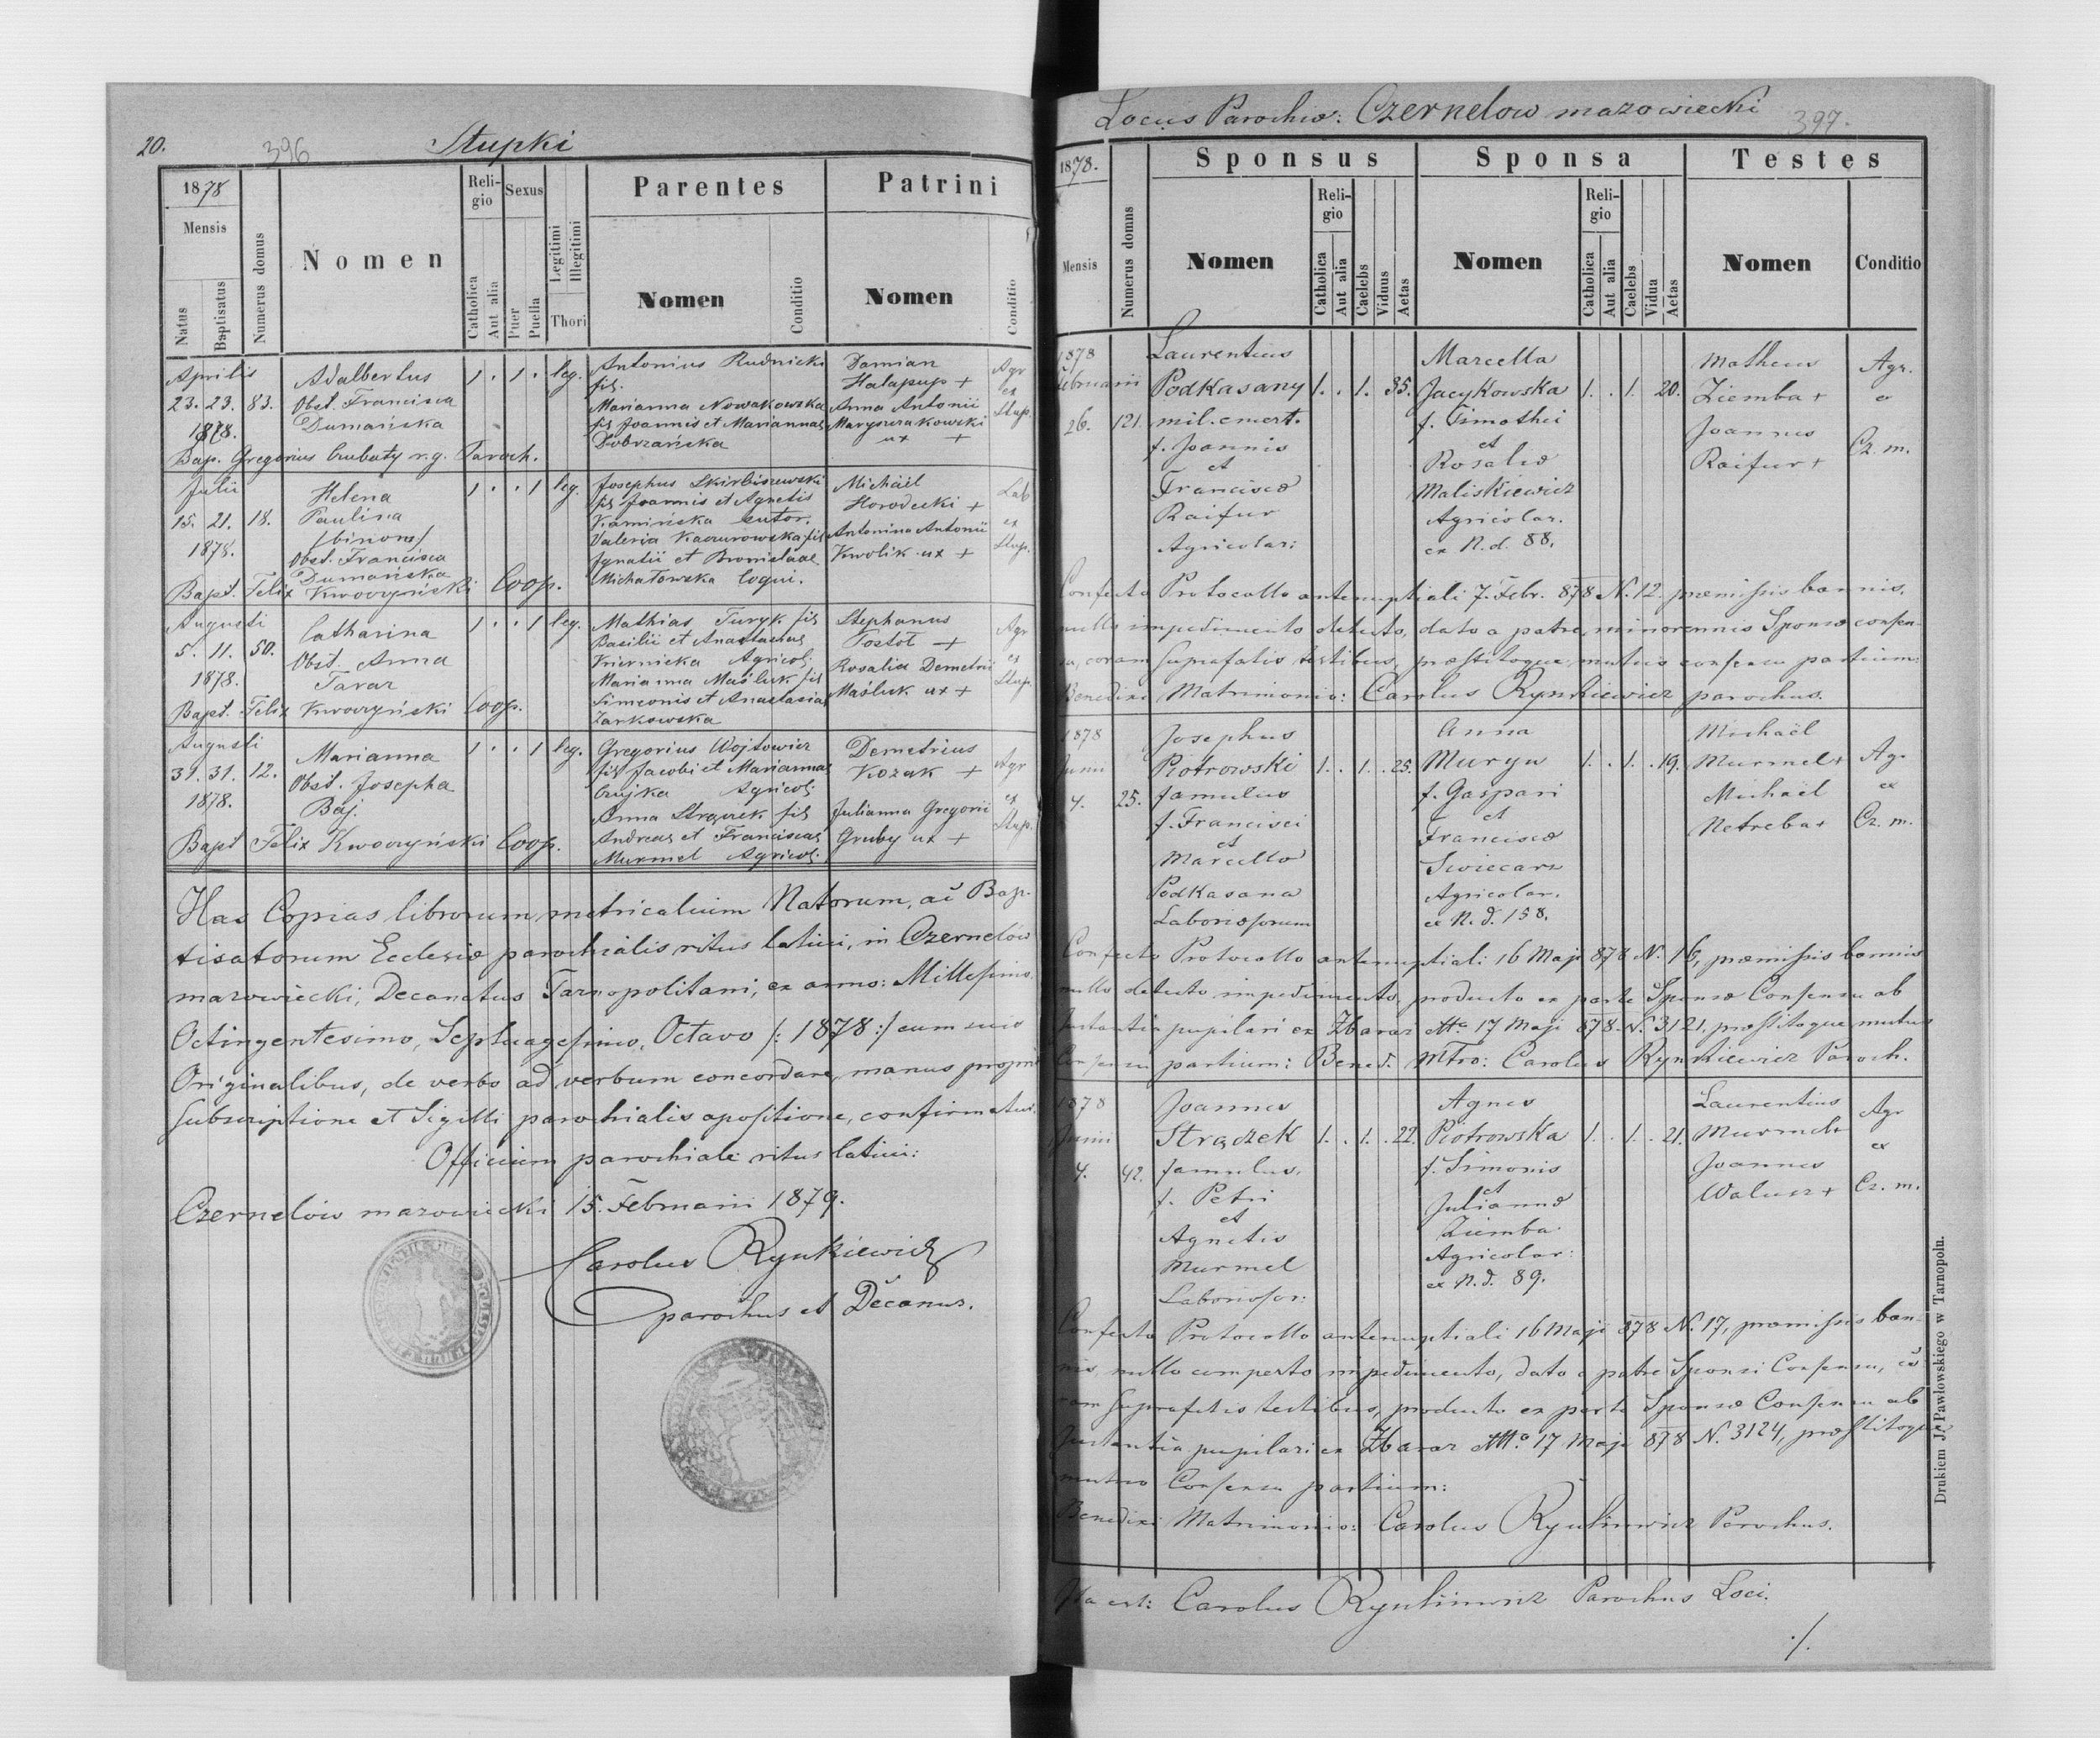 20.
396
Stupki
1878
Mensis
Natus
Baptisatus
Numerus domus
Nomen
Religio
Catholica
Aut alia
Sexus
Puer
Puella
Legitimi
Illegitimi
Thori
Parentes
Nomen
Conditio
Patrini
Nomen
Conditio
Aprilis
23. 23. 83.
1878.
Adalbertus
Obst. Francisca
Dumańska
1 . 1 . leg.
Antonius Rudnicki
fil.
Marianna Nowakowska
fil Joannis et Mariannae
Dobrzańska
Damian
Hałapup +
Anna Antonii
Maryszrakowski
ux +
Agr
ex
Stup.
Bap. Gregorius Chubaty r.g. Paroch.
Julii
15. 21. 18.
1878.
Helena
Paulina
/binom/
Obst. Francisca
Dumańska
1 . . 1 leg.
Josephus Skirliszewski
fil Joannis et Agnetis
Kamińska sutor.
Valeria Kaczurowska fil
Ignatii et Bronislaae
Michałowska loqui.
Michäel
Horodecki +
Antonina Antonii
Kwolik ux +
Lab
ex
Stup.
Bapt. Felix Kwoczyński Coop.
Augusti
5. 11. 50.
1878.
Catharina
Obst. Anna
Tavar
1 . . 1 leg.
Mathias Turyk fil
Basilii et Anastasiae
Kniernicka Agricol.
Marianna Maśluk fil
Simeonis et Anastasiae
Zarkowska
Stephanus
Postoł +
Rosalia Demetrii
Maśluk ux +
Agr
ex
Stup.
Bapt. Felix Kwoczyński Coop.
Augusti
31. 31. 12.
1878.
Marianna
Obst. Josepha
Baj.
1 . . 1 leg.
Gregorius Wojtowicz
fil Jacobi et Mariannae
Czujka Agricol.
Anna Strączek fil
Andreae et Franciscae
Murmel Agricol.
Demetrius
Kozak +
Julianna Gregorii
Gruby ux +
Agr
ex
Stup.
Bapt Felix Kwoczyński Coop.
Has Copias librorum metricalium Natorum, ac Bap-
tisatorum Ecclesiæ parochialis ritus latini, in Czernelów
mazowiecki, Decanatus Tarnopolitani, ex anno: Millesimo
Octingentesimo, Septuagesimo, Octavo /: 1878 :/ cum suis
Originalibus, de verbo ad verbum concordare, manus propriæ
subscriptione et Sigilli parochialis apositione, confirmatur.
Officium parochiale ritus latini:
Czernelów mazowiecki 15. Februarii 1879.
Carolus Rynkiewicz
parochus et Decanus.
Locus Parochiæ: Czernelow mazowiecki
397.
1878.
Mensis
Numerus domus
Sponsus
Nomen
Religio
Catholica
Aut alia
Caelebs
Viduus
Aetas
Sponsa
Nomen
Religio
Catholica
Aut alia
Caelebs
Vidua
Aetas
Testes
Nomen
Conditio
1878
Februarii
26. 121.
Laurentius
Podkasany 1. . 1. 35.
mil. emert.
f. Joannis
et
Franciscæ
Raifur
Agricolar:
Marcella
Jacykowska 1. . 1. 20.
f. Timothei
et
Rosaliæ
Maliskiewicz
Agricolar.
ex N.d. 88.
Matheus
Ziemba +
Joannes
Raifur +
Agr.
ex
Cz. m.
Confecto Protocollo antenuptiali 7. Febr. 878 N. 12. præmissis bannis,
nullo impedimento detecto, dato a patre minorennis Sponsæ consen-
su, coram suprafatis testibus, præstitoque mutuo consensu partium:
Benedixi Matrimonio: Carolus Rynkiewicz parochus.
1878
Junii
4. 25.
Josephus
Piotrowski 1. . 1. . 25.
famulus
f. Francisci
et
Marcellæ
Podkasana
Laboriosorum
Anna
Muryn 1. . 1. . 19.
f. Gaspari
et
Franciscæ
Swiecarz
Agricolar.
ex N.d. 158.
Michaël
Murmel +
Michaël
Netreba +
Agr.
ex
Cz. m.
Confecto Protocollo antenuptiali 16 Maji 878 N. 16, præmissis bannis
nullo detecto impedimento, producto ex parte Sponsæ Consensu ab
Instantia pupilari ex Zbaraż dtto. 17 Maji 878. N. 3121, præstitoque mutuo
Consensu partium: Bened. Mtro: Carolus Rynkiewicz Paroch.
1878
Junii
4. 42.
Joannes
Strączek 1. . 1. . 22.
famulus,
f. Petri
et
Agnetis
Murmel
Laboriosor:
Agnes
Piotrowska 1. . 1. . 21.
f. Simonis
et
Juliannæ
Ziemba
Agricolar:
ex N.d. 89.
Laurentius
Murmel +
Joannes
Walusz +
Agr
ex
Cz. m.
Confecto Protocollo antenuptiali 16 Maji 878 N. 17, præmissis ban-
nis, nullo comperto impedimento, dato a patre Sponsi Consensu, co-
ram suprafatis testibus, producto ex parte Sponsæ Consensu ab
Instantia pupilari ex Zbaraż dtto. 17 Maji 878 N. 3124, præstitoque
mutuo Consensu partium:
Benedixi Matrimonio: Carolus Rynkiewicz Parochus.
Ita est: Carolus Rynkiewicz Parochus Loci.
./.
Drukiem J. Pawłowskiego w Tarnopolu.